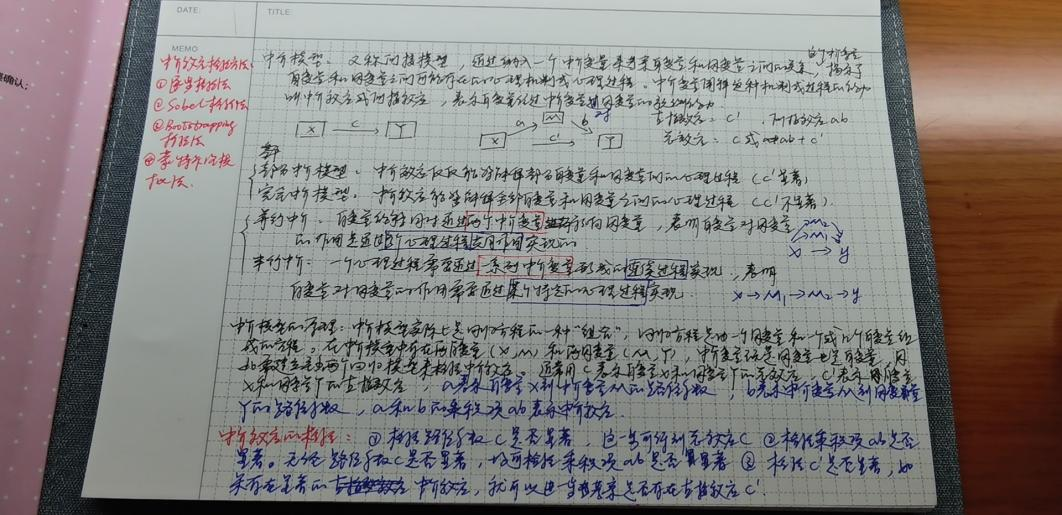 DATE:
TITLE:
MEMO
中介效应检验方法:
①逐步检验法
②Sobel检验法
③Bootstrapping
检验法
④蒙特卡洛模
拟法.
中介模型: 又称间接模型, 通过纳入一个中介变量来考察自变量和因变量之间的关系, 揭示了
自变量和因变量之间可能存在的心理机制或心理过程. 中介变量解释这种机制或过程的
叫中介效应或间接效应, 表示自变量经过中介变量对因变量的
直接效应: c' , 间接效应ab
总效应: c 或 ab+c'
X c Y
X a M b Y c'
部分中介模型: 中介效应仅仅能够解释部分自变量和因变量间的心理过程 (c'显著)
完全中介模型: 中介效应能够解释全部自变量和因变量之间的心理过程 (c'不显著).
并行中介: 自变量同时通过两个中介变量影响因变量, 表明自变量对因变量
的作用是通过心理过程共同作用实现的
串行中介: 一个心理过程需要通过一系列中介变量形成的连续过程实现, 表明
自变量对因变量的作用需要通过某个特定的心理过程实现.
M2
M1
x → y
x→M1→M2→y
中介模型的原理: 中介模型实际上是回归方程的一种“组合”, 回归方程是由一个因变量和一个或几个自变量组
成的方程, 在中介模型中存在两自变量 (X,M) 和两因变量 (M,Y), 中介变量既是因变量也是自变量, 因
此需要建立两个回归模型来检验中介效应. 通常用c表示自变量X和因变量Y的总效应, c'表示自变量
X和因变量Y的直接效应 a表示自变量X到中介变量M的路径系数, b表示中介变量M到因变量
Y的路径系数, a和b的乘积项ab表示中介效应.
中介效应的检验: ①检验路径系数c是否显著, 这一步可得到总效应c ②检验乘积项ab是否
显著。无论路径系数c是否显著, 均可检验乘积项ab是否显著 ③检验c'是否显著, 如
果存在显著的中介效应, 就可以进一步探索是否存在直接效应c'.